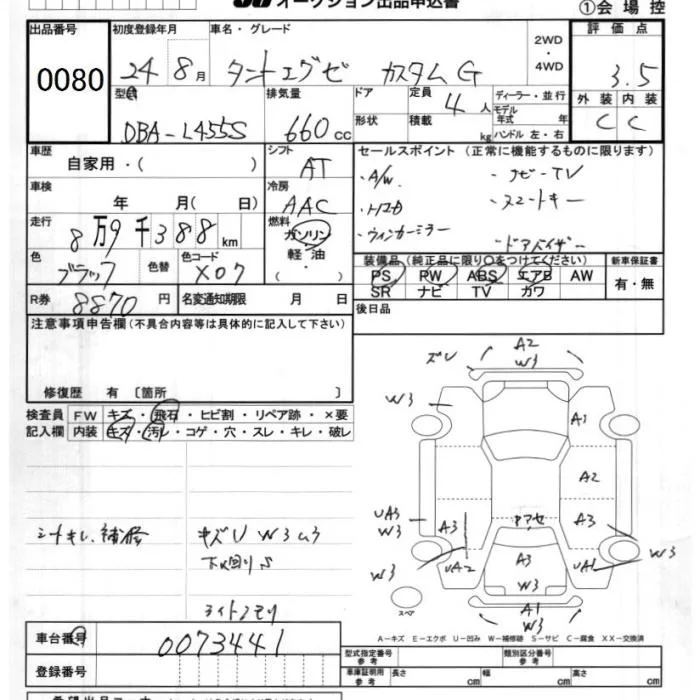 オークション出品申込書
①会場控
出品番号 初度登録年月 車名・グレード 2WD 評価点
0080 24 8月 タントエグゼ カスタムG ・4WD 3.5
型式 排気量 ドア 定員 4人 ディーラー・並行 外装 内装
DBA-L455S 660cc 形状 積載 kg モデル年式 年 C C
ハンドル 左・右
車歴 シフト セールスポイント (正常に機能するものに限ります)
自家用・( ) AT ・A/W. ・ナビーTV
車検 冷房 ・スマートキー
年 月( 日) AAC
走行 燃料 ・ウィンカーミラー
8万9千388km ガソリン ・ドアバイザー
色 色替 色コード 軽油 装備品(純正品に限り○をつけてください) 新車保証書
ブラック X07 PS PW ABS エアB AW 有・無
R券 名変通知期限 SR ナビ TV カワ
8870円 月 日 後日品
注意事項申告欄(不具合内容等は具体的に記入して下さい)
修復歴 有 〔箇所 〕
検査員 FW キズ・飛石・ヒビ割・リペア跡・×要
記入欄 内装 キズ・汚レ・コゲ・穴・スレ・キレ・破レ
A2
W3
W3
A1
A2
UA3
W3
A3
A3
シートキレ、補修 キズU W3ムラ
下回りS
W3
UA2
A3
W3
UA1
W3
スペア
A1
W3
ライトクモリ
A-キズ E-エクボ U-凹み W-補修跡 S-サビ C-腐食 XX-交換済
車台番号 0073441
型式指定番号 参考 類別区分番号 参考
登録番号 車庫証明用 参考 長さ cm 幅 cm 高さ cm